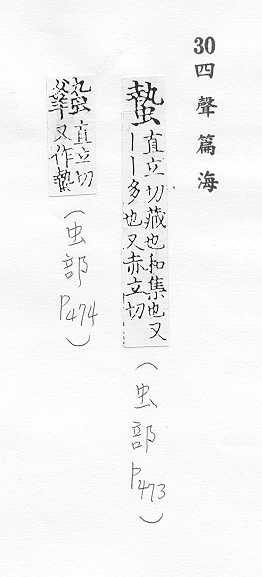 30四聲篇海
蟄直立切藏也和集也又
丨丨多也又赤立切
(虫部P473)
直立切
又作蟄
(虫部P474)